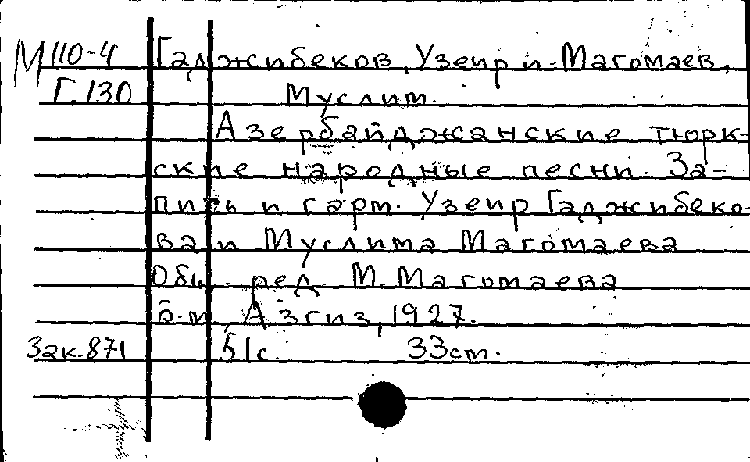 М 110-4 Гаджибеков, Узеир и Магомаев,
Г.130 Муслим.
Азербайджанские тюрк-
ские народные песни. За-
пись и гарм. Узеир Гаджибеко-
ва и Муслима Магомаева
Общ. ред. М. Магомаева
б.м., Азгиз, 1927.
Зак.871 51с. 33см.